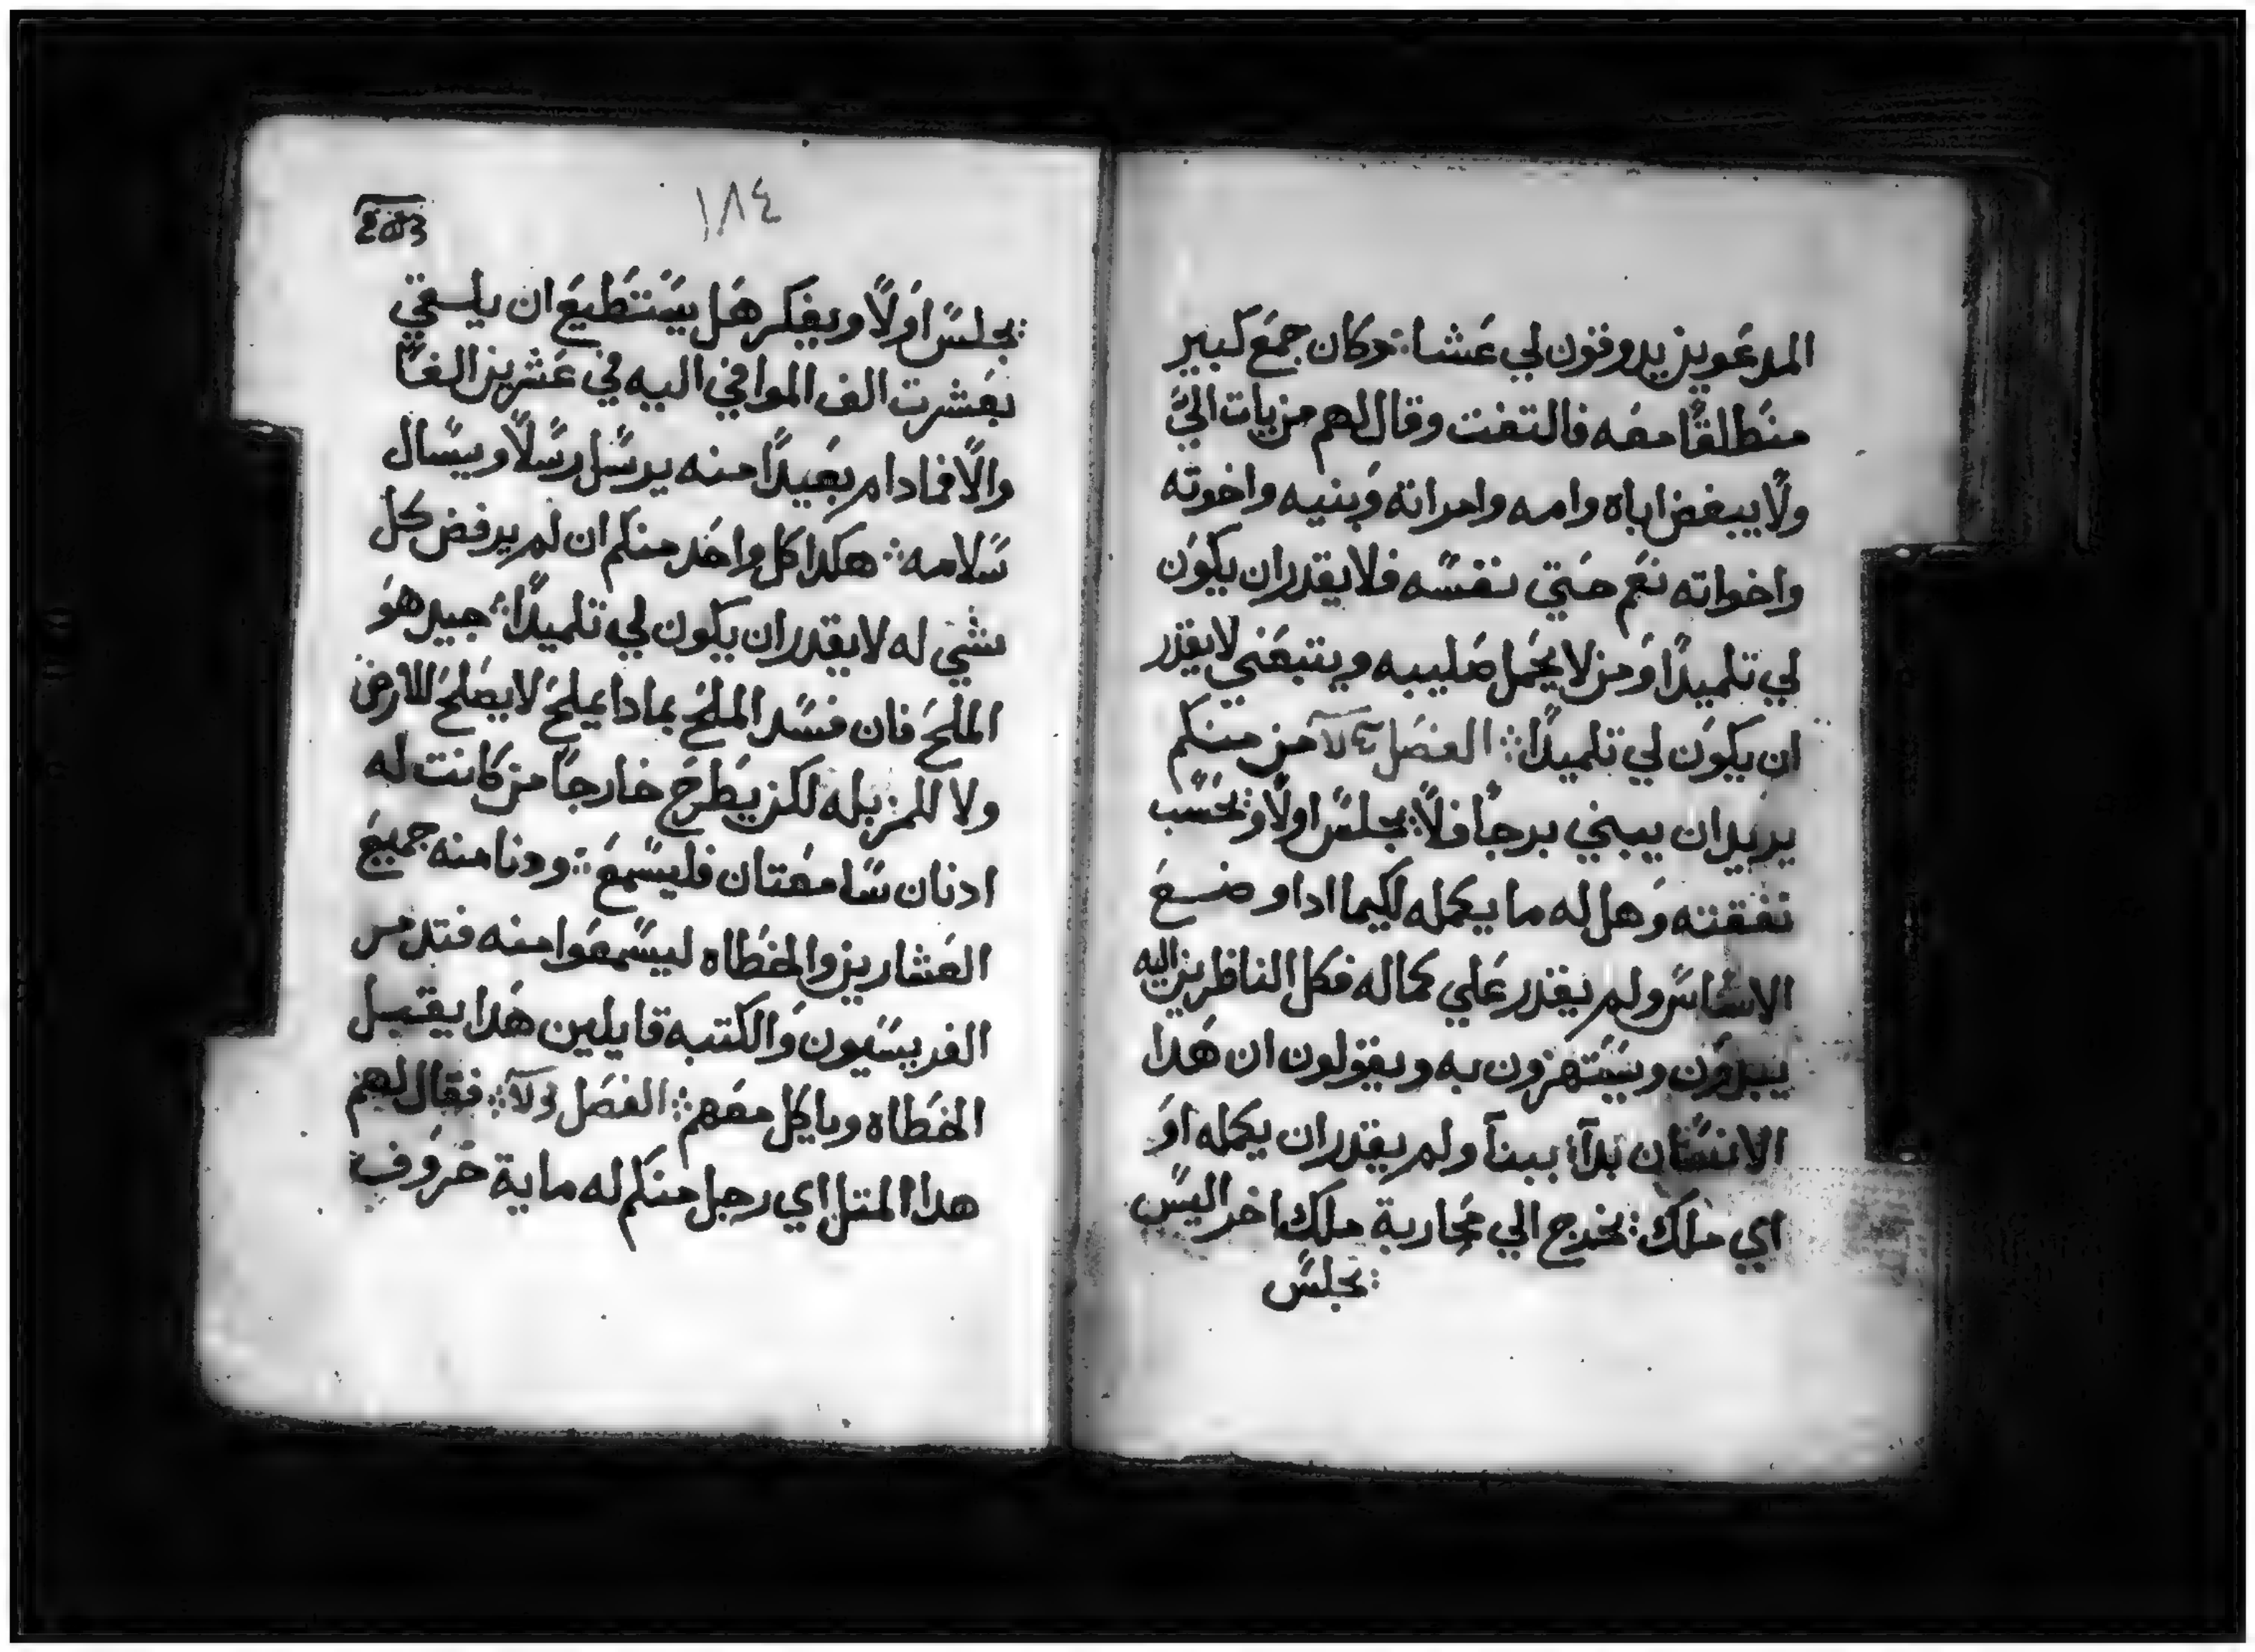 المدعوين يدوقون لي عشا ܀ وكان جمع كبير
منطلقًا معه فالتفت وقال لهم من يات اليَّ
ولا يبغض اباه وامه وامراته وبنيه واخوته
واخواته نعم حتي نفسه فلا يقدر ان يكون
لي تلميدًا ومن لا يحمل صليبه ويتبعني لا يقدر
ان يكون لي تلميدًا ܀ الفصل من منكم
يريد ان يبني برجًا فلا يجلس اولًا ويحسب
نفقته وهل له ما يكمله لكيما ادا وضع
الاساس ولم يقدر علي كماله فكل الناظرين اليه
يبدون ويستهزون به ويقولون ان هدا
الانسان بدآ ببنآ ولم يقدر ان يكمله او
اي ملك يخرج الي محاربة ملك اخر اليس
يجلس
١٨٤
يجلس اولًا ويفكر هل يستطيع ان يلتقي
بعشرت الف الموافي اليه في عشرين الفًا
والا فمادام بعيدًا منه يرسل رسلًا ويسال
سلامه ܀ هكدا كل واحد منكم ان لم يرفض كل
شي له لا يقدر ان يكون لي تلميدًا ܀ جيد هو
الملح فان فسد الملح بمادا يملح لا يصلح للارض
ولا للمزبله لكن يطرح خارجًا من كانت له
ادنان سامعتان فليسمع ܀ ودنا منه جميع
العشارين والخطاه ليسمعوا منه فتدمر
الفريسيون والكتبه قايلين هدا يقبل
الخطاه وياكل معهم ܀ الفصل فقال لهم
هدا المتل اي رجل منكم له ماية خروف